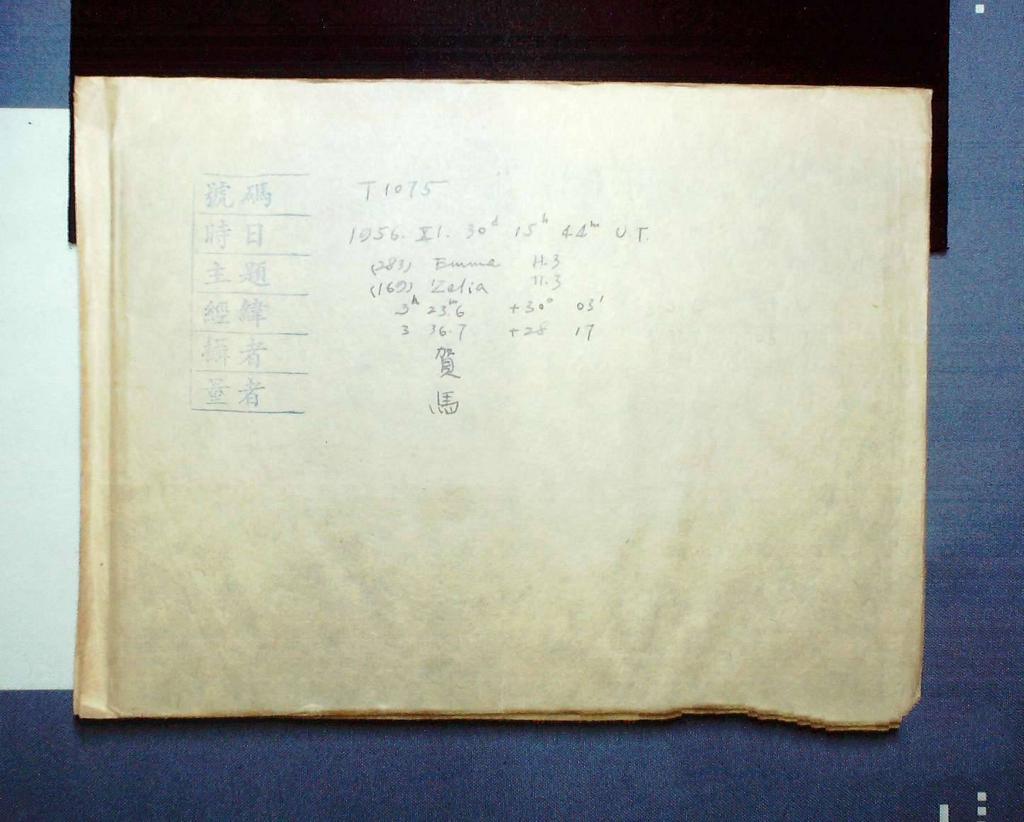 號碼 T1075
時日 1956. XI. 30ᵈ 15ʰ 44ᵐ U T.
主題 (283) Emma H.3
(169) Zelia H.3
經緯 3ʰ 23ᵐ.6 +30° 03'
3 36.7 +28 17
攝者 賀
量者 馬